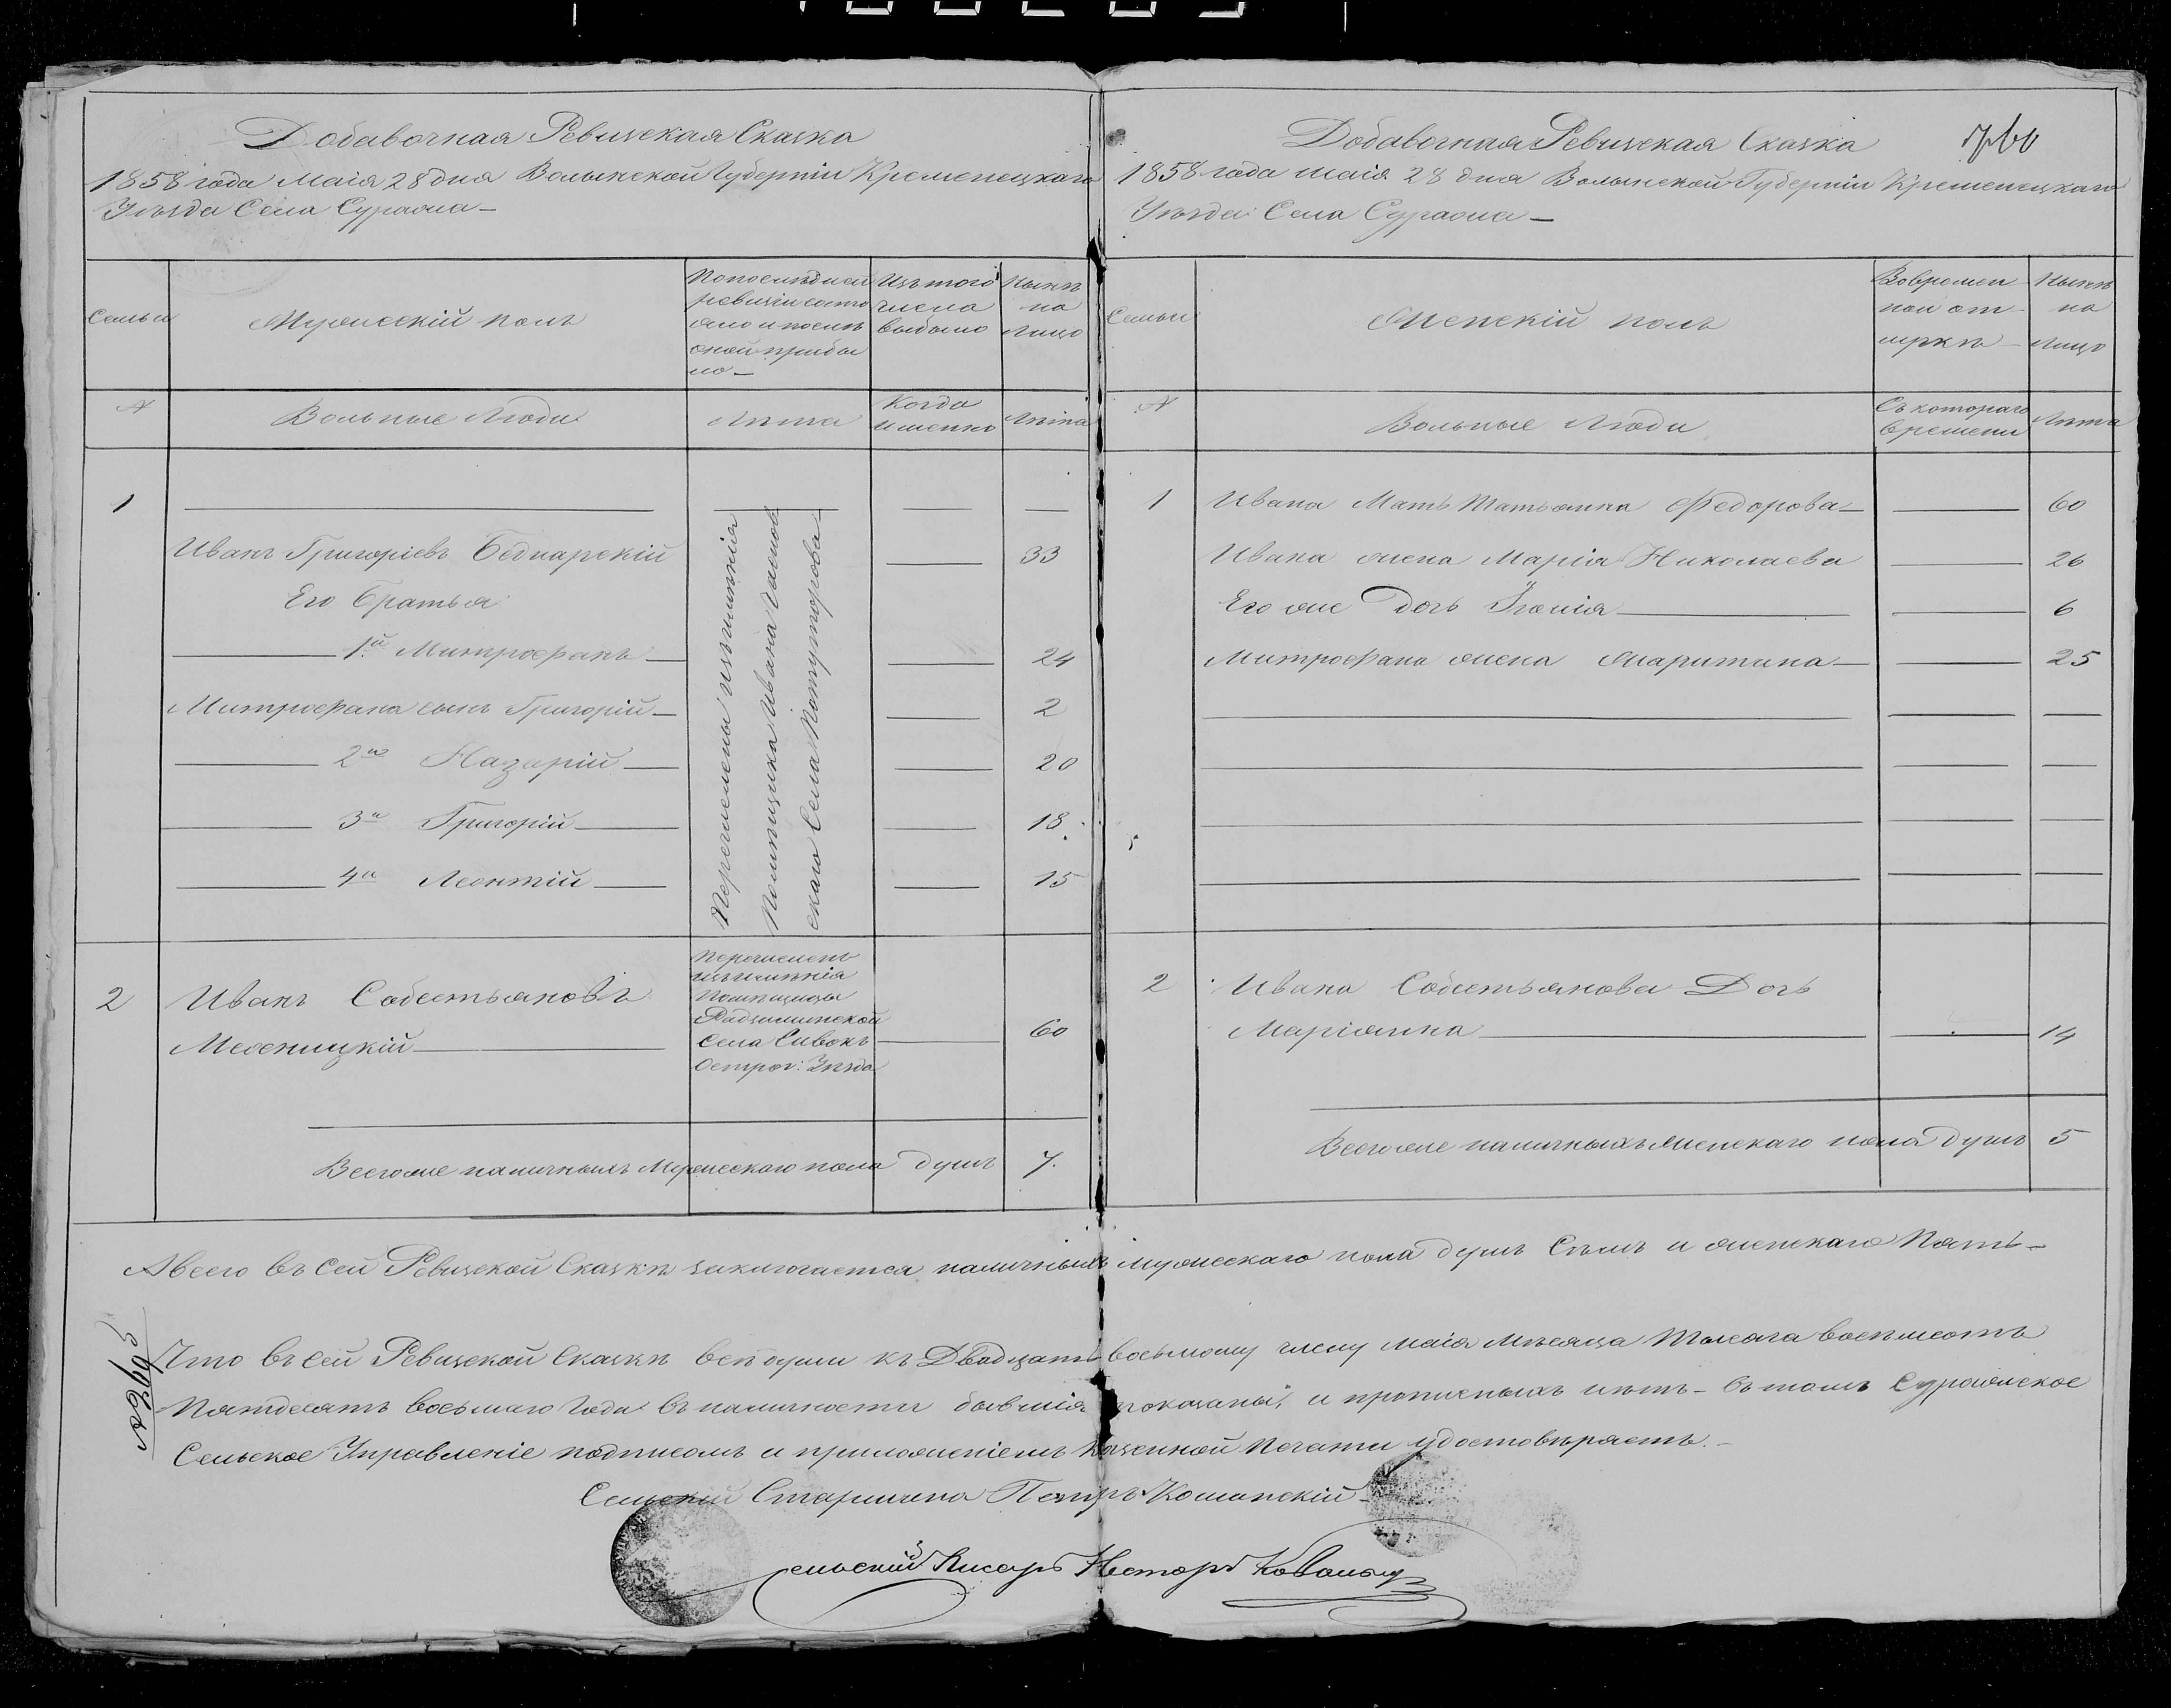 Добавочная Ревизская Сказка
1858 года Маія 28 дня Волынской Губерніи Кременецкаго
Уѣзда Села Суража —
Семьи
Мужескій полъ
Попослѣдней
ревизіи состо
яло и послѣ
оной прибы
ло —
Изъ того
числа
выбыло
Нынѣ
на
лицо
№
Вольные Люди
Лѣта
Когда
именно
Лѣта
1
Иванъ Григоріевъ Беднарскій
33
Его братья
1й Митрофанъ
24
Митрофана сынъ Григорій
2
2й Назарій
20
3й Григорій
18
4й Леонтій
15
Перечислены изъ имѣнія
Помѣщика Ивана
скаго Села Потуторова
2
Иванъ Собестьяновъ
Мезеницкій
Перечисленъ
изъ имѣнія
Помѣщицы
Радзиминской
Села Сивокъ
Острог: Уѣзда
60
Всегоже наличныхъ Мужескаго пола душъ 7.
Добавочная Ревизская Сказка
760
1858 года маія 28 дня Волынской Губерніи Кременецкаго
Уѣзда Села Суража —
Семьи
Женскій полъ
Вовремен
ной от
лучкѣ
Нынѣ
на
лицо
№
Вольные Люди
Съ котораго
времени
Лѣта
1
Ивана Мать Татьянна Федорова
60
Ивана жена Марія Николаева
26
Его же Дочь
6
Митрофана жена
25
2
Ивана Собестьянова Дочь
Маріянна
14
Всегоже наличныхъ женскаго пола душъ 5
Авсего въ сей Ревизской Сказкѣ заключается наличныхъ мужескаго пола душъ Семъ и женскаго Пять —
Что въ сей Ревизской Сказкѣ всѣ души къ Двадцать восьмому числу маія Мѣсяца Тысяча восѣмсотъ
Пятдесятъ восьмаго Года въ наличности бывшія показаны, и прописныхъ нѣтъ — въ томъ Суражское
Сельское Управленіе подписомъ и приложеніемъ казенной Печати удостовѣряетъ. —
Сельскій Старшина Петръ Команскій
Сельский Писарь Несторъ